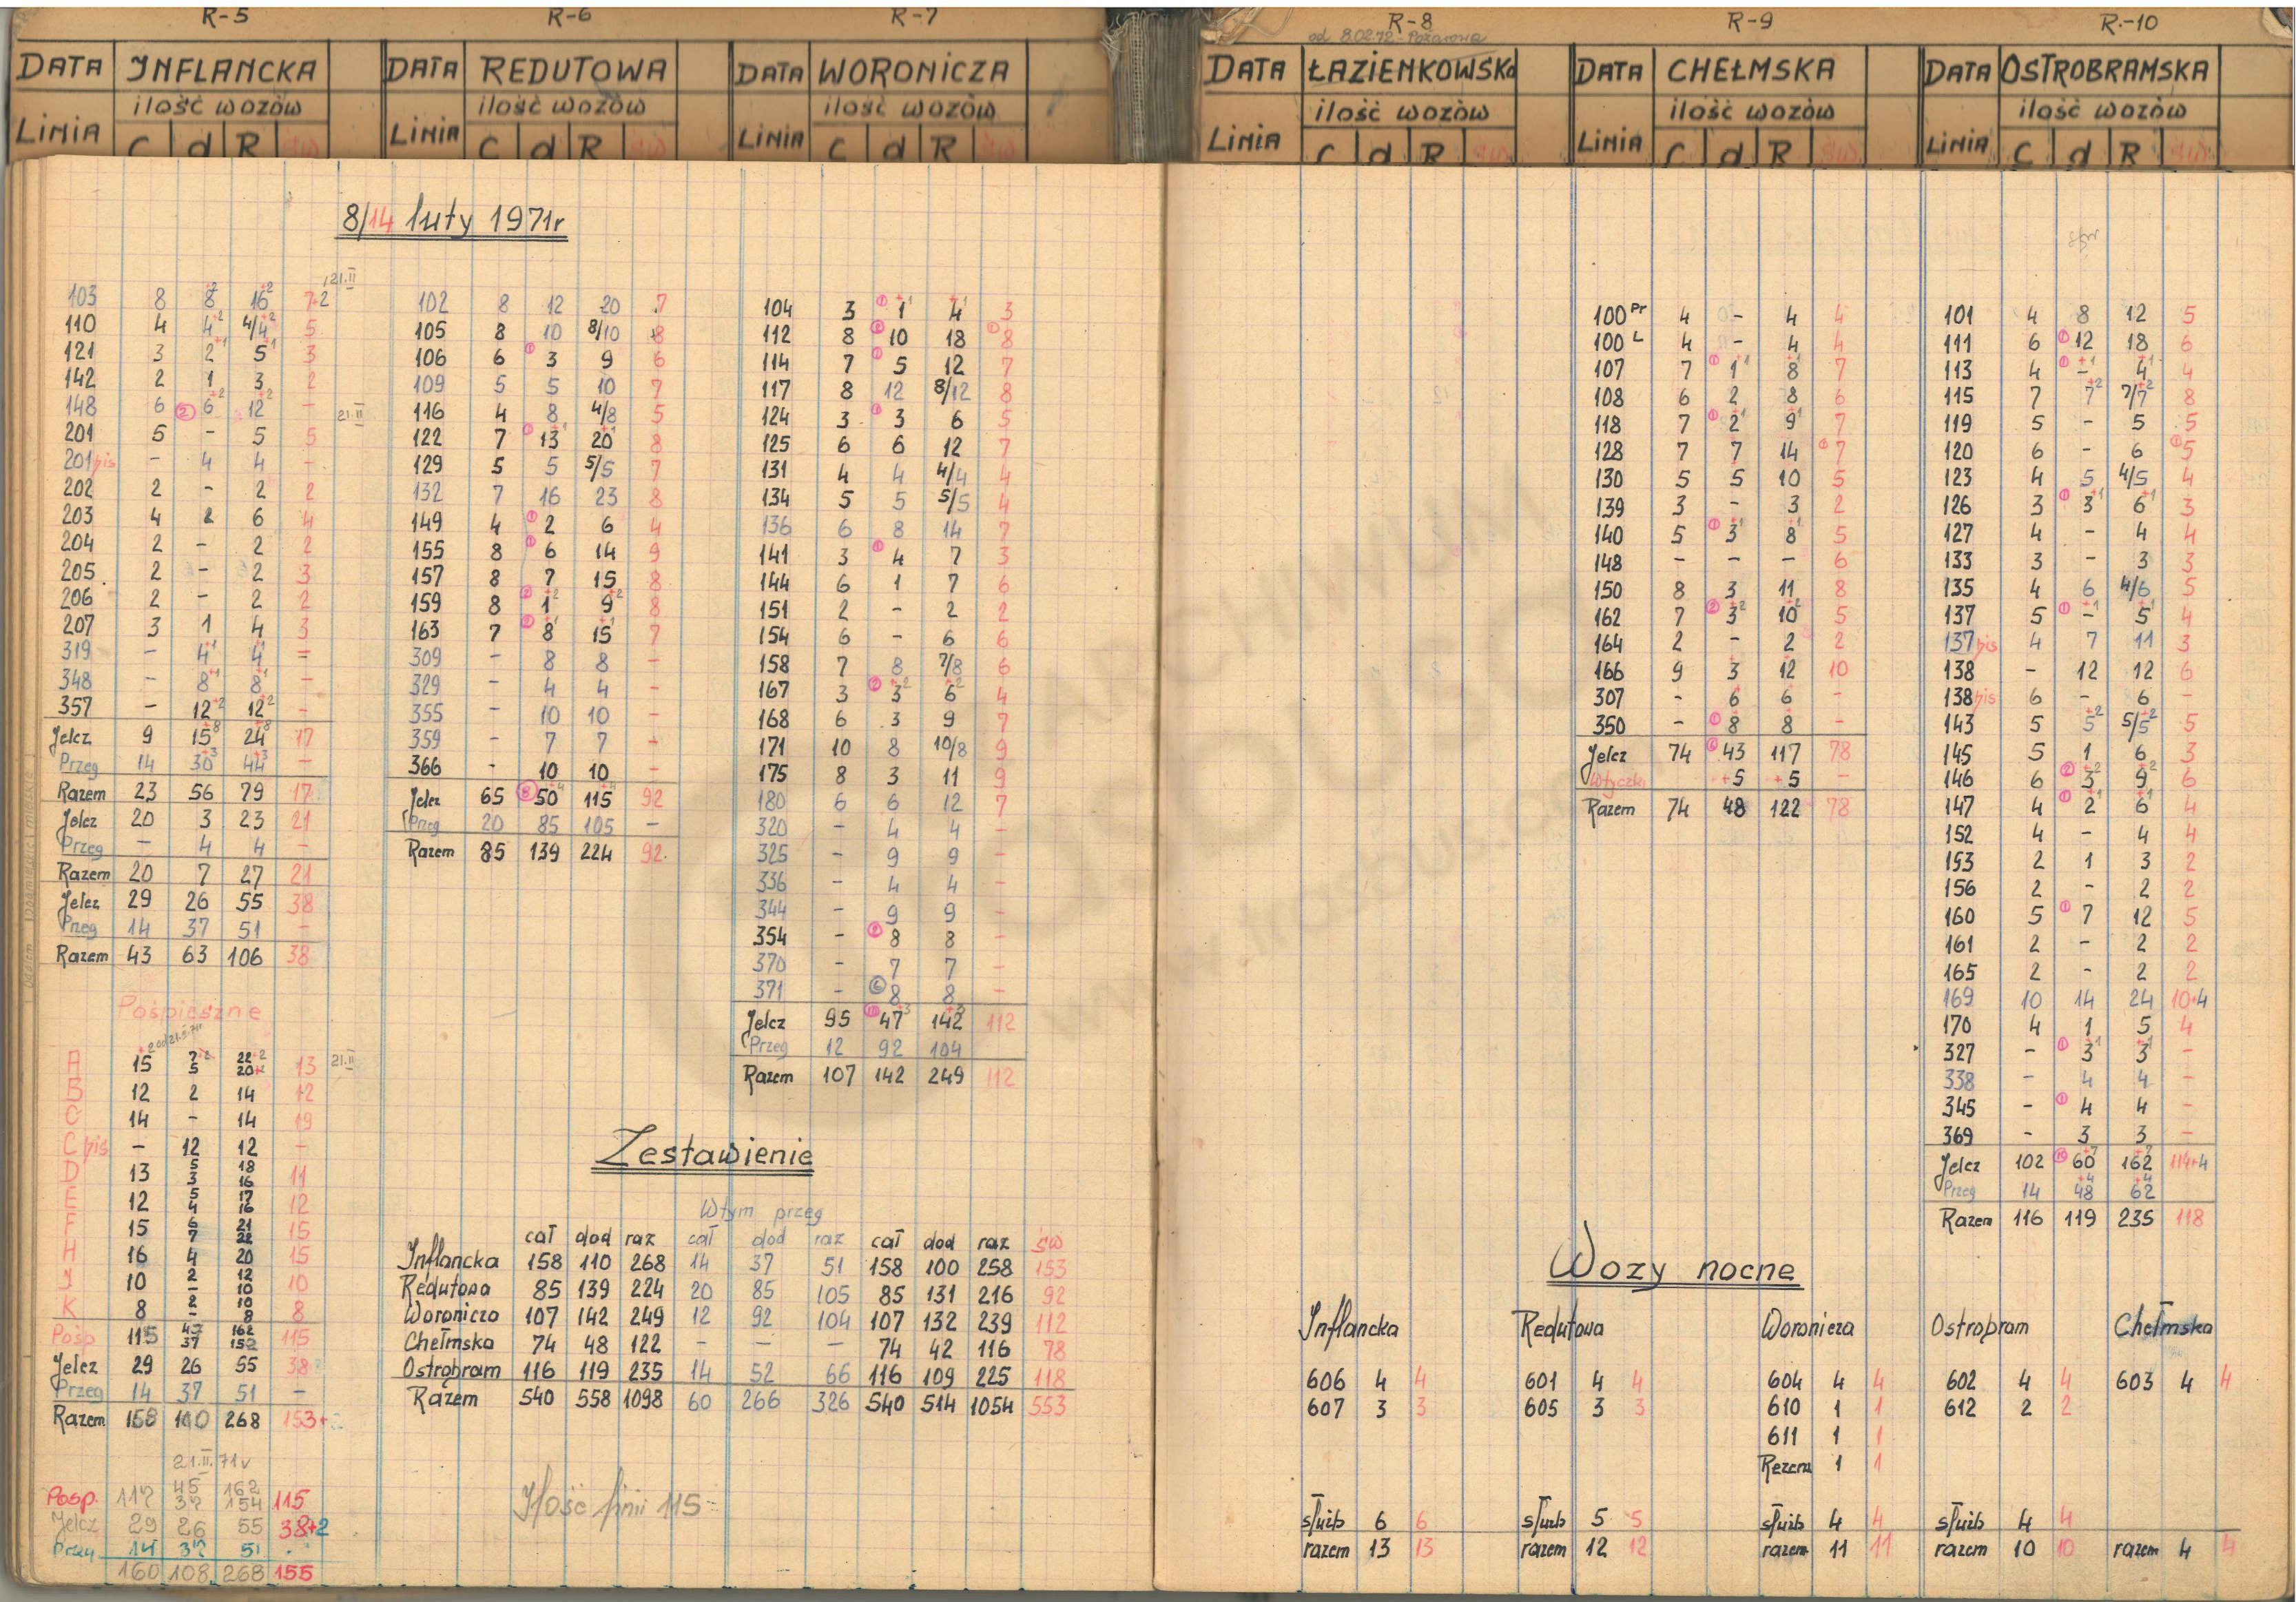 R-5
DATA INFLANCKA
ilość wozów
LINIA C d R św
R-6
DATA REDUTOWA
ilość wozów
LINIA C d R św
R-7
DATA WORONICZA
ilość wozów
LINIA C d R św
R-8
od 8.02.72 - Pożarowa
DATA ŁAZIENKOWSKa
ilość wozów
LINIA C d R św
R-9
DATA CHEŁMSKA
ilość wozów
LINIA C d R św
R.-10
DATA OSTROBRAMSKA
ilość wozów
LINIA C d R św
8/14 luty 1971r
21.II
103 8 8+2 16+2 7+2
110 4 4+2 4/4+2 5
121 3 2+1 5+1 3
142 2 1 3 2
148 6 ② 6+2 12+2 - 21.II
201 5 - 5 5
201bis - 4 4 -
202 2 - 2 2
203 4 2 6 4
204 2 - 2 2
205 2 - 2 3
206 2 - 2 2
207 3 1 4 3
319 - 4+1 4+1 =
348 - 8+1 8+1 -
357 - 12+2 12+2 -
Jelcz 9 15+8 24+8 17
Przeg 14 30+3 44+3 -
Razem 23 56 79 17
Jelcz 20 3 23 21
Przeg - 4 4 -
Razem 20 7 27 21
Jelcz 29 26 55 38
Przeg 14 37 51 -
Razem 43 63 106 38
Pośpieszne
A 15 7+2 22+2 13 21.II
5 20+2
B 12 2 14 12
C 14 - 14 19
C bis - 12 12 -
D 13 5 18 11
3 16
E 12 5 17 12
4 16
F 15 6 21 15
7 22
H 16 4 20 15
J 10 2 12 10
- 10
K 8 2 10 8
- 8
Pośp 115 47 162 115
37 152
Jelcz 29 26 55 38
Przeg 14 37 51 -
Razem 158 110 268 153+2
21.II.71r
Pośp. 117 45 162 115
37 154
Jelcz 29 26 55 38+2
Przeg 14 37 51 -
160 108 268 155
102 8 12 20 7
105 8 10 8/10 8
106 6 ① 3 9 6
109 5 5 10 7
116 4 8 4/8 5
122 7 ① 13+1 20+1 8
129 5 5 5/5 7
132 7 16 23 8
149 4 ① 2 6 4
155 8 ① 6 14 9
157 8 7 15 8
159 8 ② 1+2 9+2 8
163 7 ② 8+1 15+1 7
309 - 8 8 -
329 - 4 4 -
355 - 10 10 -
359 - 7 7 -
366 - 10 10 -
Jelcz 65 ⑧ 50+4 115+4 92
Przeg 20 85 105 -
Razem 85 139 224 92
104 3 ① 1+1 4+1 3
112 8 ② 10 18 ① 8
114 7 ① 5 12 7
117 8 12 8/12 8
124 3 ① 3 6 5
125 6 6 12 7
131 4 4 4/4 4
134 5 5 5/5 4
136 6 8 14 7
141 3 ① 4 7 3
144 6 1 7 6
151 2 - 2 2
154 6 - 6 6
158 7 8 7/8 6
167 3 ② 3+2 6+2 4
168 6 3 9 7
171 10 8 10/8 9
175 8 3 11 9
180 6 6 12 7
320 - 4 4 -
325 - 9 9 -
336 - 4 4 -
344 - 9 9 -
354 - ② 8 8 -
370 - 7 7 -
371 - ⑥ 8 8 -
Jelcz 95 ⑩ 47+3 142+3 112
Przeg 12 92 104
Razem 107 142 249 112
Zestawienie
Wtym przeg
cał dod raz cał dod raz cał dod raz św
Inflancka 158 110 268 14 37 51 158 100 258 153
Redutowa 85 139 224 20 85 105 85 131 216 92
Woronicza 107 142 249 12 92 104 107 132 239 112
Chełmska 74 48 122 - - - 74 42 116 78
Ostrobram 116 119 235 14 52 66 116 109 225 118
Razem 540 558 1098 60 266 326 540 514 1054 553
Ilość linii 115
100 Pr 4 - 4 4
100 L 4 - 4 4
107 7 ① 1+1 8+1 7
108 6 2 8 6
118 7 ① 2+1 9+1 7
128 7 7 14 ① 7
130 5 5 10 5
139 3 - 3 2
140 5 ① 3+1 8+1 5
148 - - - 6
150 8 3 11 8
162 7 ② 3+2 10+2 5
164 2 - 2 2
166 9 3 12 10
307 - 6 6 -
350 - ① 8 8 -
Jelcz 74 ⑥ 43 117 78
Wtyczki +5 +5 -
Razem 74 48 122 78
101 4 8 12 5
111 6 ① 12 18 6
113 4 ① -+1 4+1 4
115 7 7+2 7/7+2 8
119 5 - 5 5
120 6 - 6 ① 5
123 4 5 4/5 4
126 3 ① 3+1 6+1 3
127 4 - 4 4
133 3 - 3 3
135 4 6 4/6 5
137 5 ① -+1 5+1 4
137bis 4 7 11 3
138 - 12 12 6
138bis 6 - 6 -
143 5 5+2 5/5+2 5
145 5 1 6 3
146 6 ② 3+2 9+2 6
147 4 ① 2+1 6+1 4
152 4 - 4 4
153 2 1 3 2
156 2 - 2 2
160 5 ① 7 12 5
161 2 - 2 2
165 2 - 2 2
169 10 14 24 10+4
170 4 1 5 4
327 - ① 3+1 3+1 -
338 - 4 4 -
345 - ① 4 4 -
369 - 3 3 -
Jelcz 102 60+7 162+7 114+4
Przeg 14 48+4 62+4
Razem 116 119 235 118
Wozy nocne
Inflancka Redutowa Woronicza Ostrobram Chełmska
606 4 4 601 4 4 604 4 4 602 4 4 603 4 4
607 3 3 605 3 3 610 1 1 612 2 2
611 1 1
Rezerw 1 1
służb 6 6 służb 5 5 służb 4 4 służb 4 4
razem 13 13 razem 12 12 razem 11 11 razem 10 10 razem 4 4